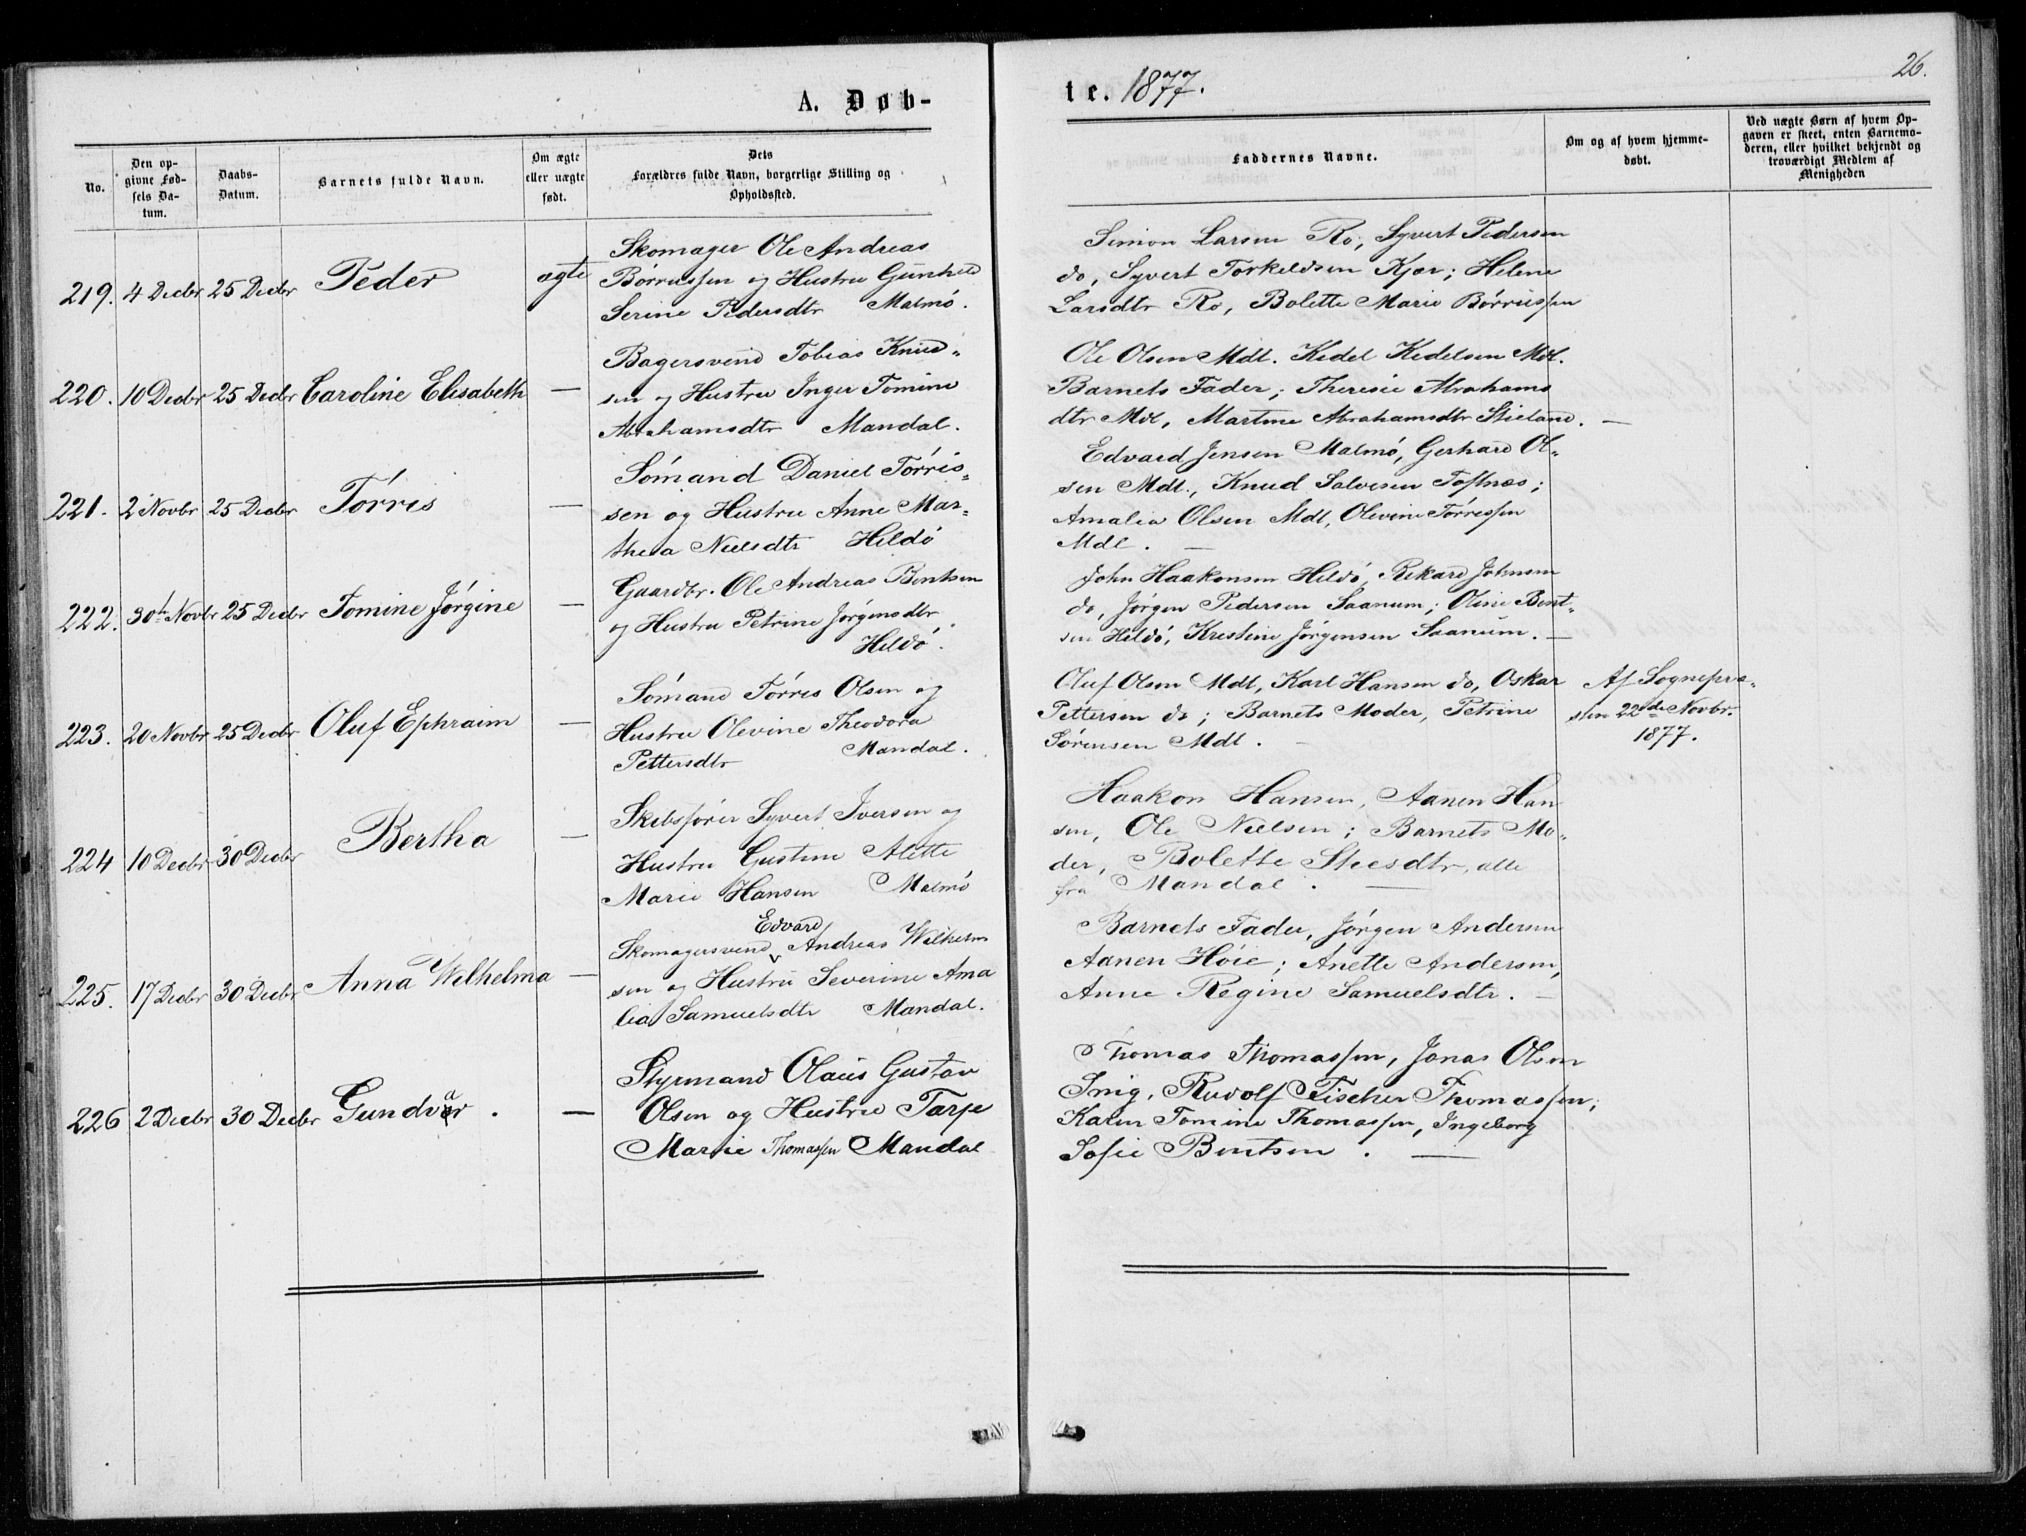 26.
A. Døb-
te. 1877.
No.
Den op-
givne Fød-
sels Da-
tum.
Daabs-
Datum.
Barnets fulde Navn.
Om ægte
eller uægte
født.
Dets
Forældres fulde Navn, borgerlige Stilling og
Opholdssted.
Faddernes Navne.
Om og af hvem hjemme-
døbt.
Ved uægte Børn af hvem Op-
gaven er skeet, enten Barnemo-
deren, eller hvilket bekjendt og
troværdigt Medlem af
Menigheden
219. 4 Decbr 25 Decbr Peder ægte
Skomager Ole Andreas
Børrussen og Hustru Gunhild
Serine Pedersdtr Malmö.
Simon Larsen Ro, Syvert Pedersen
do, Syvert Torkeldsen Kjær; Helene
Larsdtr Ro, Bolette Marie Børrussen
220. 10 Decbr 25 Decbr Caroline Elisabeth —
Bagersvend Tobias Knud-
sen og Hustru Inger Tomine
Abrahamsdtr Mandal.
Ole Olsen Mdl. Kedel Kedelsen Mdl.
Barnets Fader; Theresie Abrahams
dtr Mdl, Martine Abrahamsdtr Skieland. —
221. 2 Novbr 25 Decbr Törris —
Sömand Daniel Törris-
sen og Hustru Anne Mar-
thea Nielsdtr Hildö
Edvard Jensen Malmö, Gerhard Ol-
sen Mdl., Knud Salvesen Toftnæs;
Amalia Olsen Mdl, Olevine Törressen
Mdl. —
222. 30te Novbr 25 Decbr Tomine Jørgine —
Gaardbr. Ole Andreas Bentsen
og Hustru Petrine Jørgensdtr
Hildö.
John Haakonsen Hildö, Rikard Johnsen
do, Jørgen Pedersen Saanum; Oline Bent-
sen Hildö, Kristine Jørgensen Saanum. —
223. 20 Novbr 25 Decbr Oluf Ephraim —
Sömand Törres Olsen og
Hustru Olevine Theodora
Pettersdtr Mandal.
Oluf Olsen Mdl, Karl Hansen do, Oskar
Pettersen do; Barnets Moder, Petrine
Sørensen Mdl. —
Af Sognepræ-
sten 22de Novbr.
1877.
224 10 Decbr 30 Decbr Bertha —
Skibsfører Syvert Iversen og
Hustru Gustine Alette
Marie Hansen Malmö
Haakon Hansen, Aanen Han
sen, Ole Nielsen; Barnets Mo-
der, Bolette Steesdtr, alle
fra Mandal. —
225. 17 Decbr 30 Decbr Anna Wilhelma —
Edvard
Skomagersvend Andreas Wilhelm
sen og Hustru Severine Ama
lia Samuelsdtr Mandal.
Barnets Fader, Jørgen Andersen
Aanen Höie; Anette Andersen,
Anne Regine Samuelsdtr. —
226 2 Decbr 30 Decbr Gundvar. —
Styrmand Olaus Gustav
Olsen og Hustru Tarje
Marie Thomassen Mandal
Thomas Thomassen, Jonas Olsen
Snig, Rudolf Fischer Thomassen;
Karen Tomine Thomassen, Ingeborg
Sofie Bentsen. —